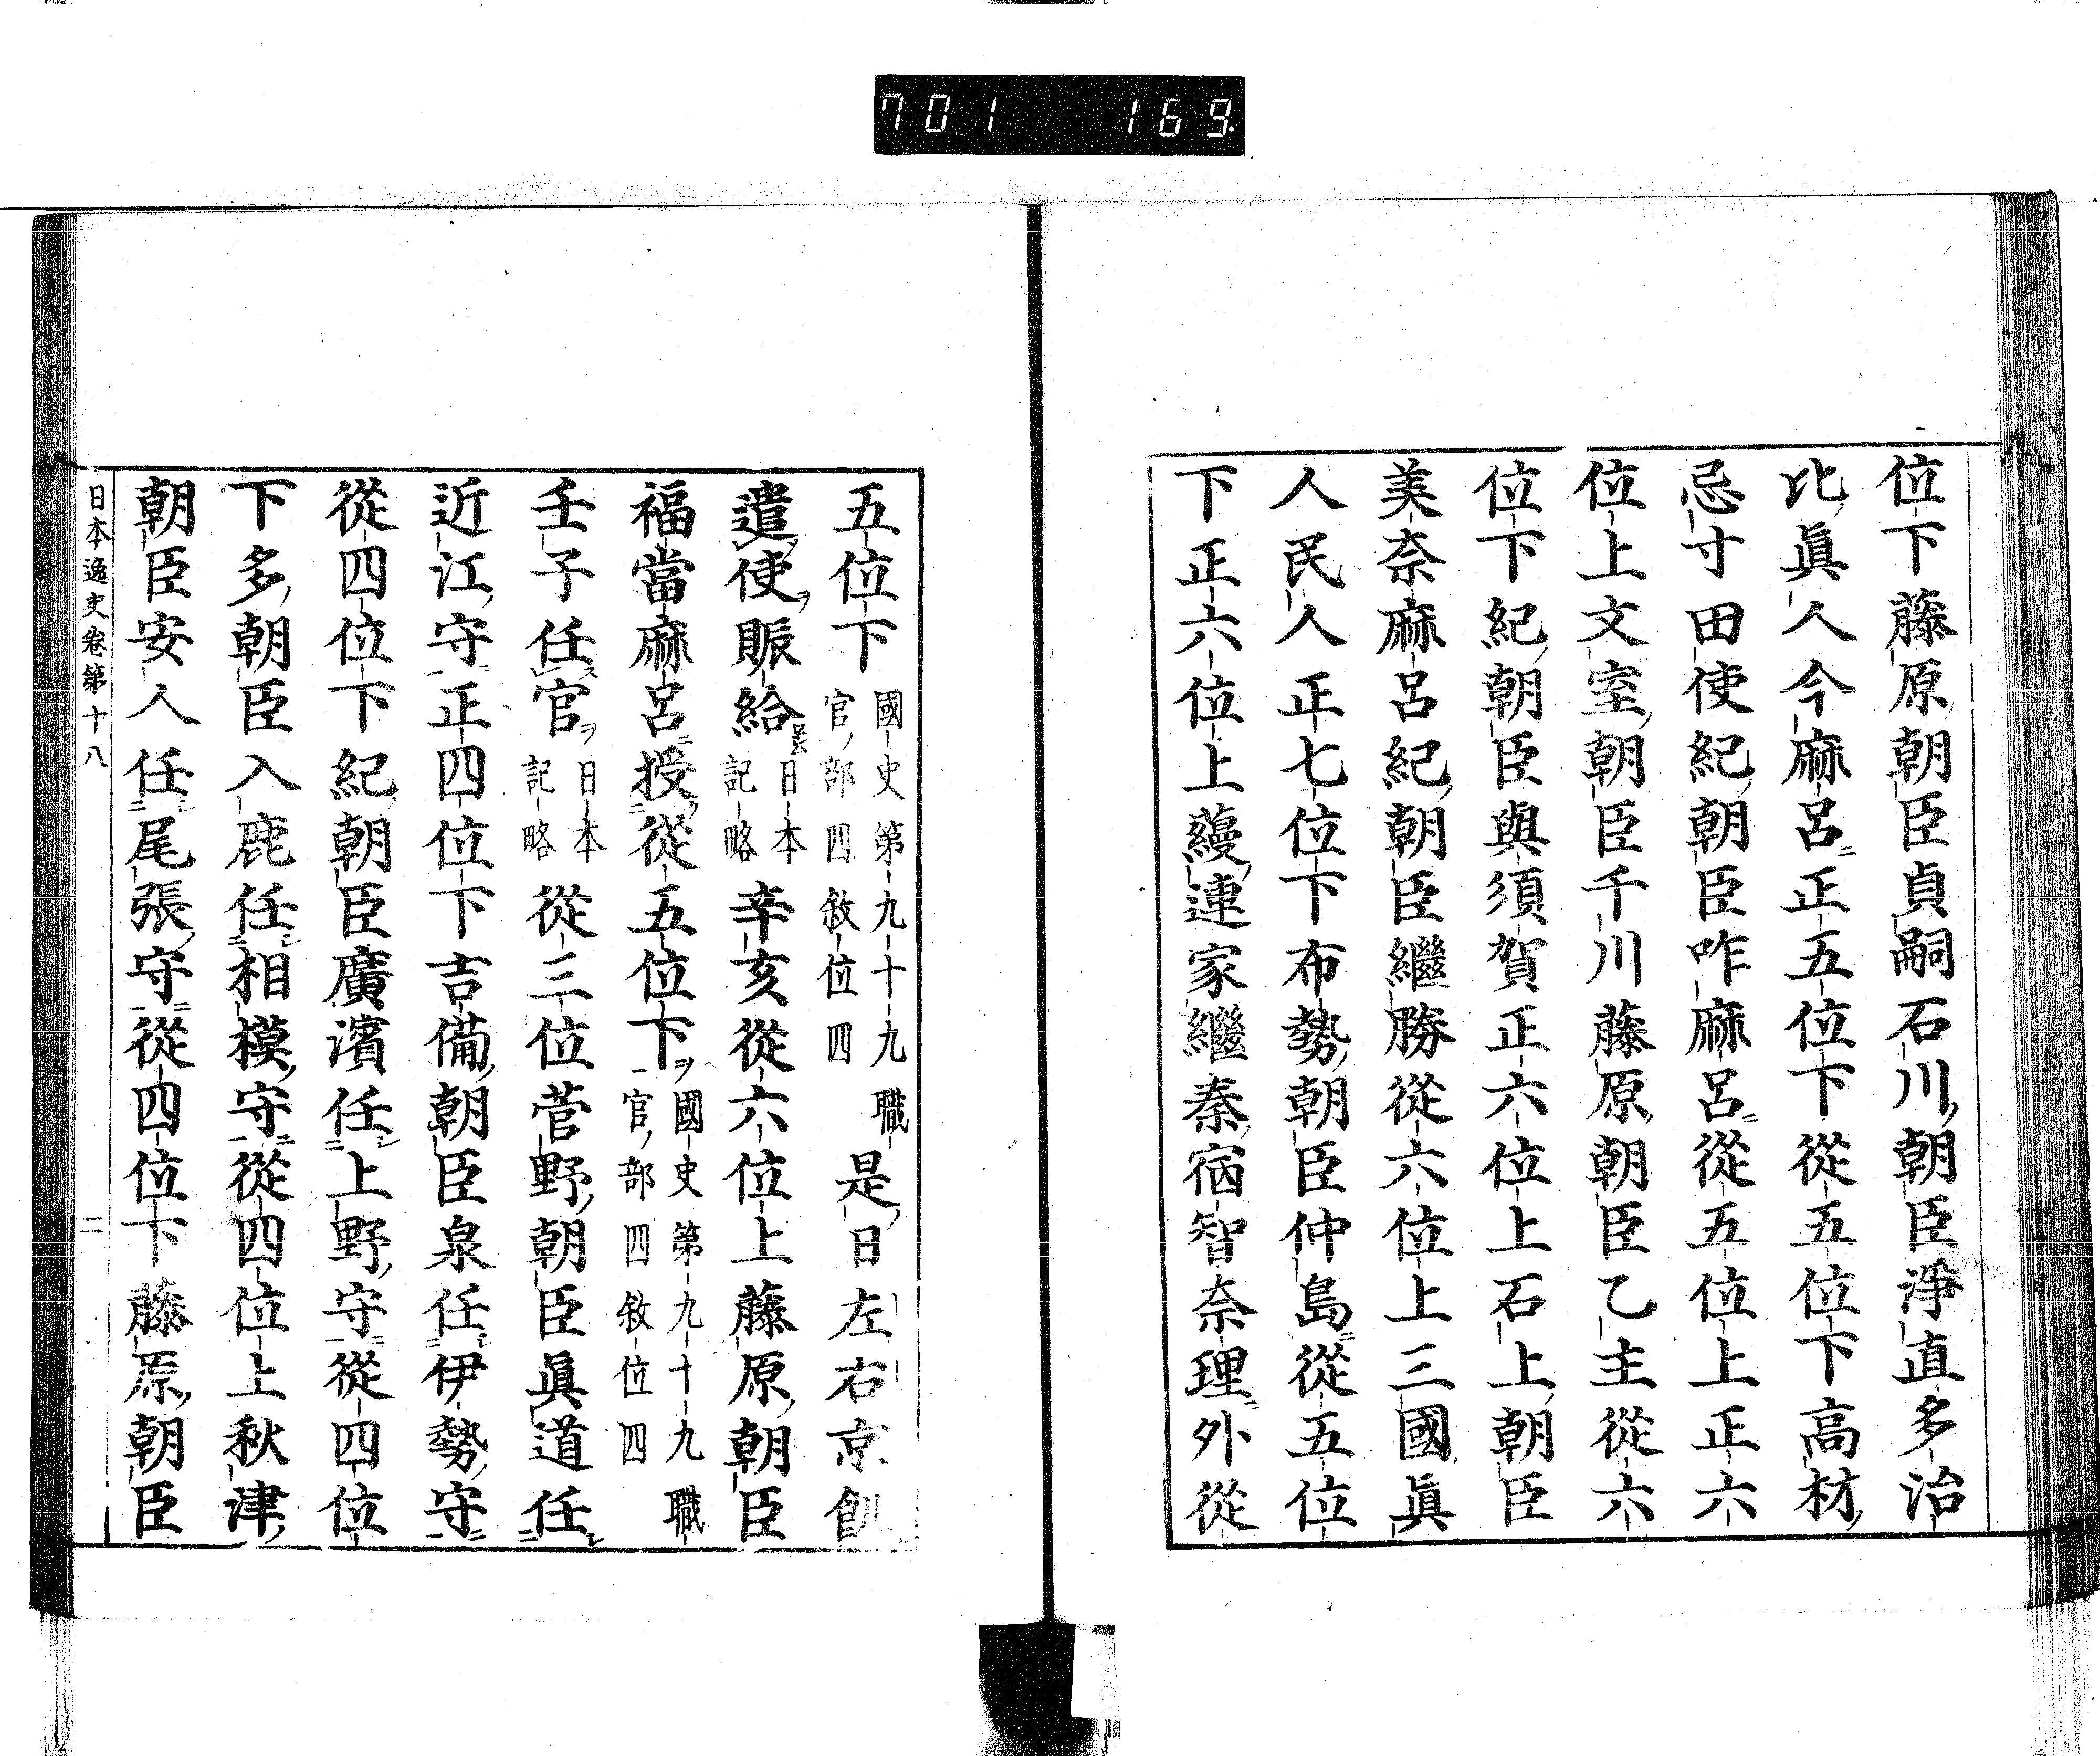 701 169
位下藤原朝臣貞嗣石川朝臣淨直多治
比眞人今麻呂正五位下從五位下高村
忌寸田使紀朝臣咋麻呂從五位上正六
位上文室朝臣千川藤原朝臣乙主從六
位下紀朝臣與須賀正六位上石上朝臣
美奈麻呂紀朝臣繼勝從六位上三國眞
人民人正七位下布勢朝臣仲島從五位
下正六位上蘰連家繼秦宿智奈理外從
五位下國史第九十九職官部四敘位四是日左右京飢
遣使賑給日本記略辛亥從六位上藤原朝臣
福當麻呂授從五位下國史第九十九職官部四敘位四
壬子任官日本記略從三位菅野朝臣眞道任
近江守正四位下吉備朝臣泉任伊勢守
從四位下紀朝臣廣濱任上野守從四位
下多朝臣入鹿任相模守從四位上秋津
朝臣安人任尾張守從四位下藤原朝臣
日本逸史卷第十八 二